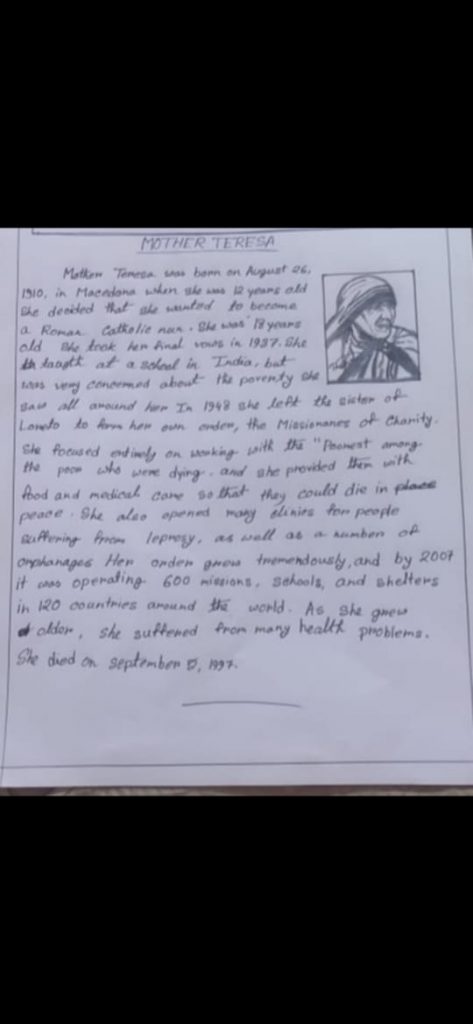 MOTHER TERESA
Mother Teresa was born on August 26,
1910, in Macedana when she was 12 years old
she decided that she wanted to become
a Roman Catholic nun. She was 18 years
old she took her final vows in 1937. She
taught at a school in India, but
was very concerned about the poverty she
saw all around her In 1948 she left the sister of
Loreto to form her own order, the Missionaries of Charity.
She focused entirely on working with the "Poorest among
the poor who were dying. and she provided them with
food and medical care so that they could die in place
peace. She also opened many clinics for people
suffering from leprosy, as well as a number of
orphanages Her order grew tremendously, and by 2007
it was operating 600 missions, schools, and shelters
in 120 countries around the world. As she grew
older, she suffered from many health problems.
She died on september 5, 1997.